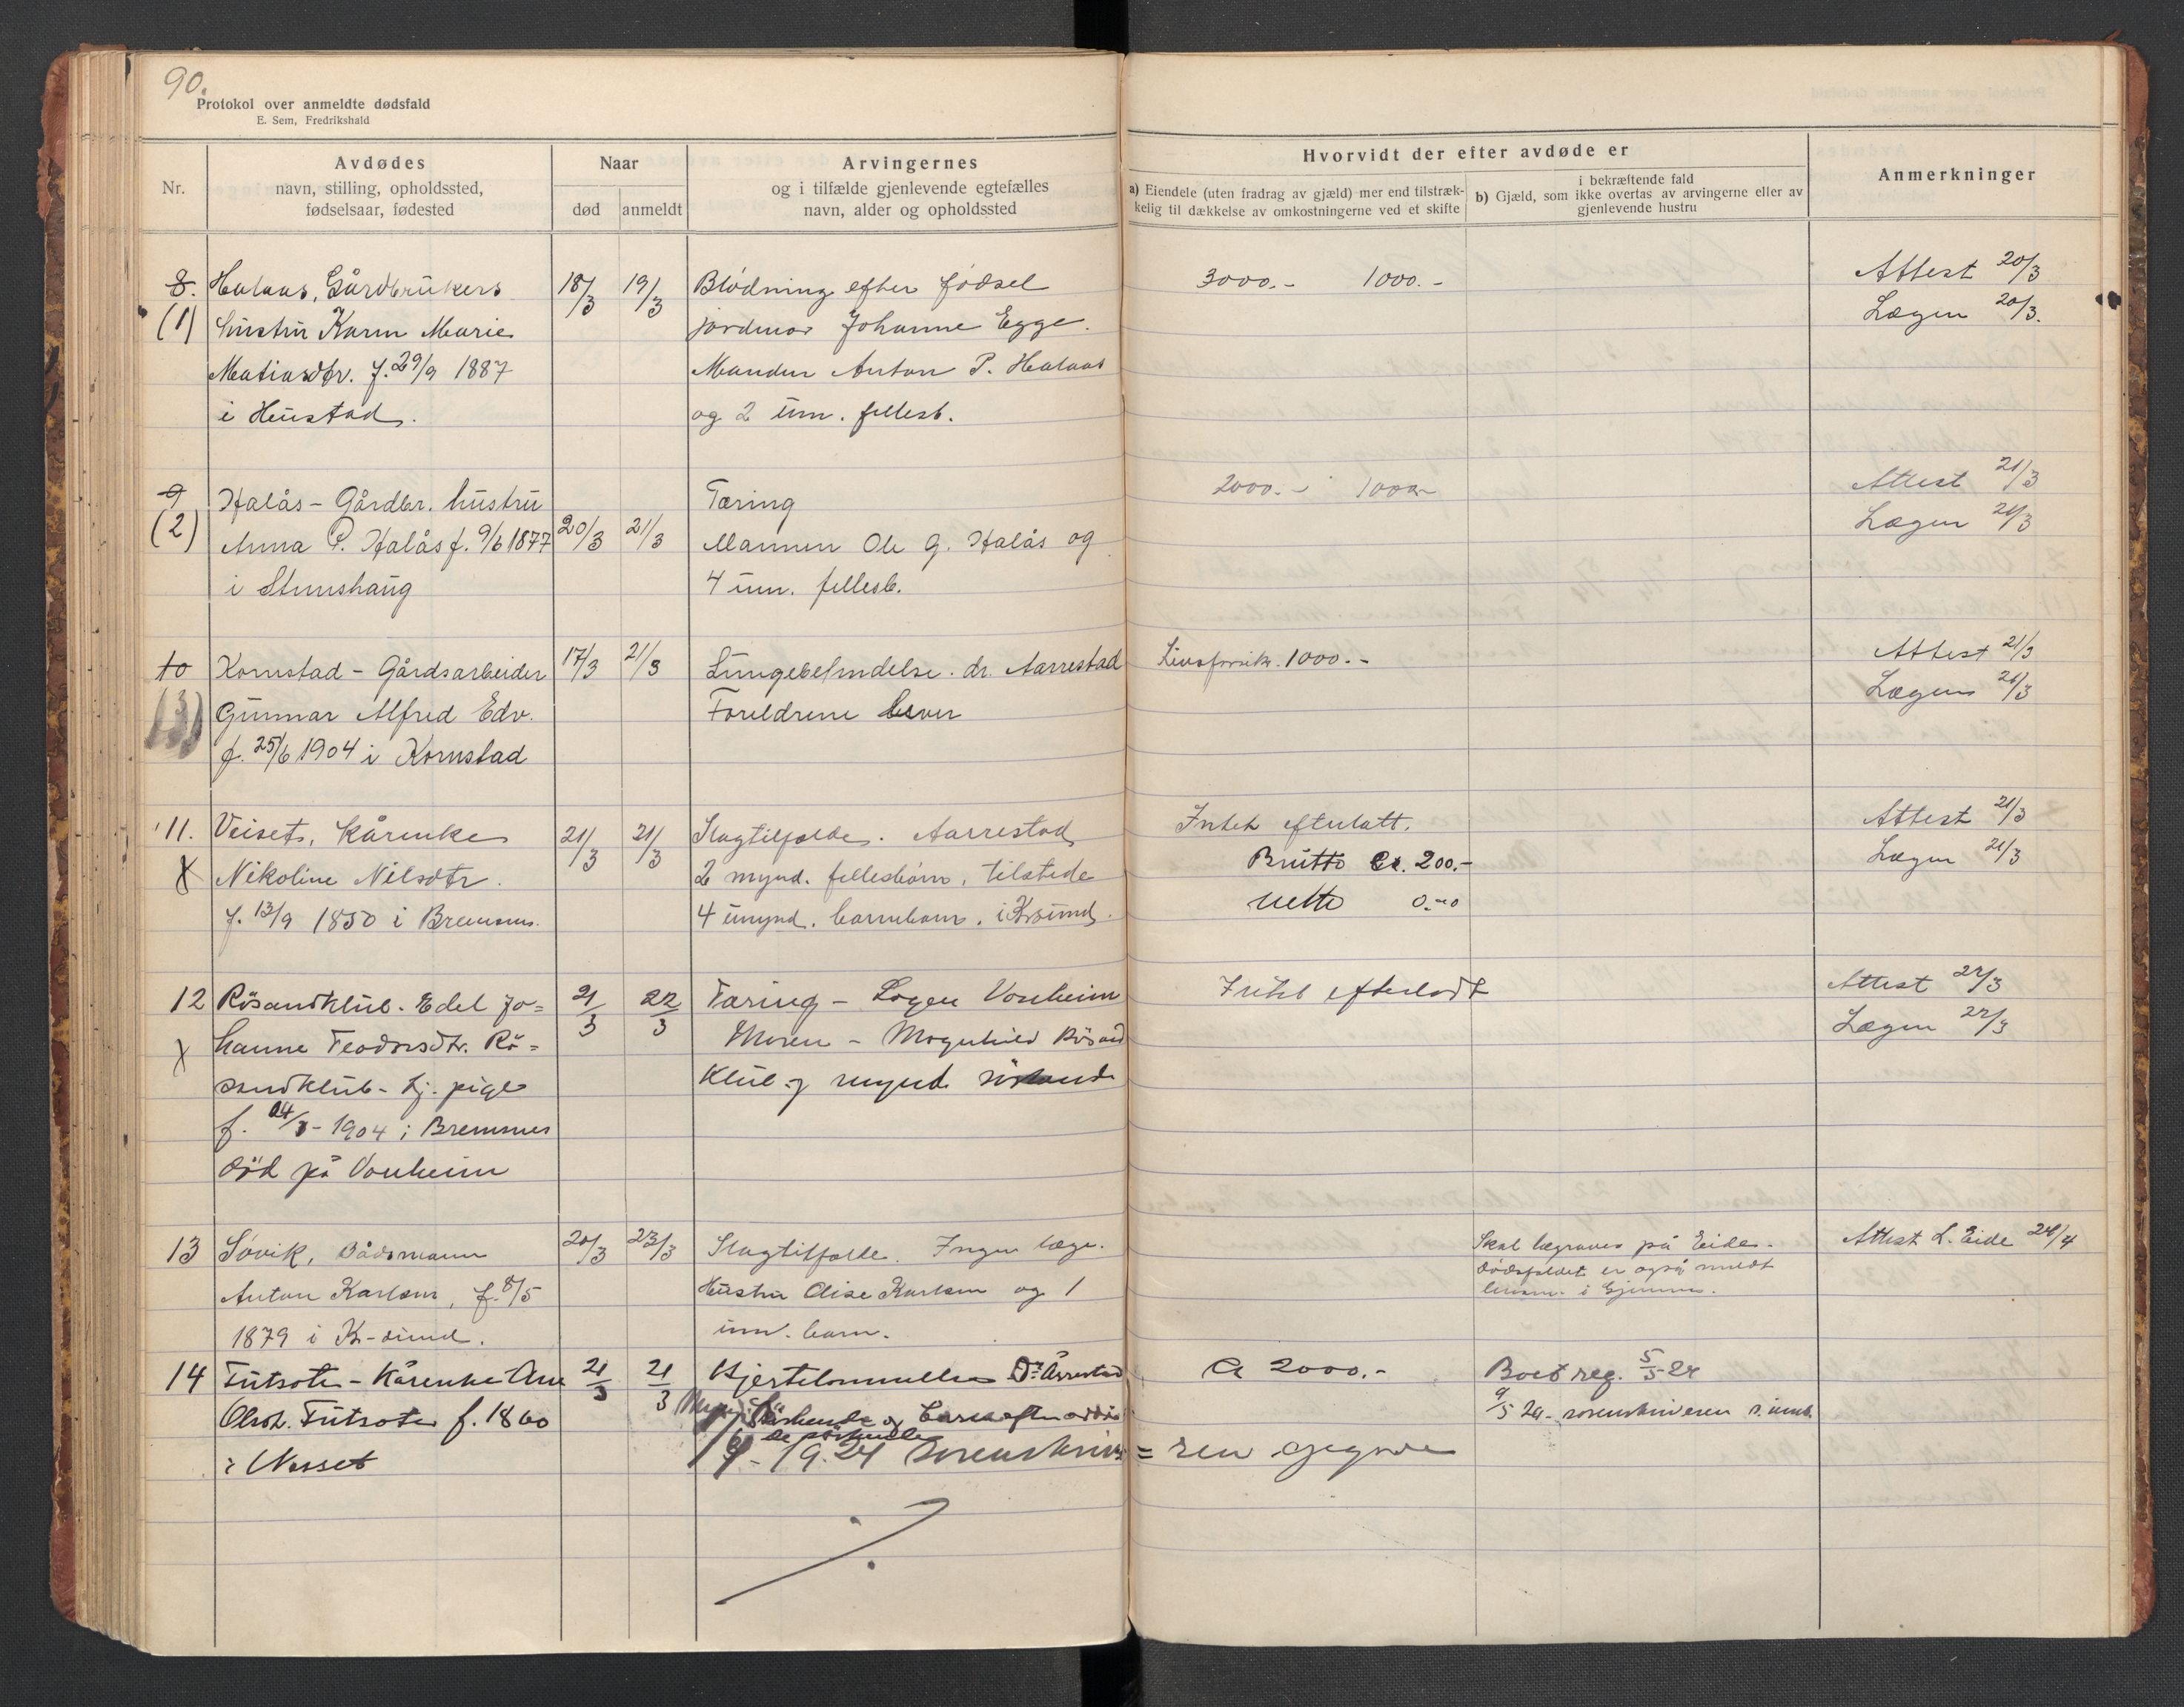 90.
Protokol over anmeldte dødsfald
E. Sem, Fredrikshald
Nr.
Avdødes
navn, stilling, opholdssted,
fødselsaar, fødested
Naar
død
anmeldt
Arvingernes
og i tilfælde gjenlevende egtefælles
navn, alder og opholdssted
Hvorvidt der efter avdøde er
a) Eiendele (uten fradrag av gjæld) mer end tilstræk-
kelig til dækkelse av omkostningerne ved et skifte
i bekræftende fald
b) Gjæld, som ikke overtas av arvingerne eller av
gjenlevende hustru
Anmerkninger
8. Halaas, Gårdbrukers 18/3 19/3 Blödning efter födsel 3000.- 1000.- Attest 20/3
(1) hustru Karen Marie jordmor Johanne Egge. Lægen 20/3.
Matiasdtr. f. 29/9 1887 Manden Anton P. Halaas
i Hustad. og 2 um. fellesb.
9 Halås - Gårdbr. hustru Tæring 2000.- 1000.- Attest 21/3
(2) Anna P. Halås f. 9/6 1877 20/3 21/3 Mannen Ole G. Halås og Lægen 21/3
i Stemshaug 4 um. fellesb.
10 Kornstad - Gårdsarbeider 17/3 21/3 Lungebetendelse. dr. Aarrestad Livsforsikr. 1000.- Attest 21/3
(3) Gunnar Alfred Edv. Foreldrene lever Lægen 21/3
f. 25/6 1904 i Kornstad
11. Veiset, Kårenke 21/3 21/3 Slagtilfælde. Aarrestad Intet efterlatt. Attest 21/3
X Nikoline Nilsdtr. 2 mynd. fellesbörn, tilstede Brutto Ca. 200.- Lægen 21/3
f. 13/9 1850 i Bremsnes. 4 umynd. barnebarn. i Krsund. netto 0.-
12 Rösandklub. Edel Jo= 21/3 22/3 Tæring - Logen Vonheim Intet efterladt Attest 22/3
X hanne Teodorsdtr. Rö= Moren - Magnhild Rösand Lægen 22/3
sandklub - tj. pige klub og mynd. söskende
f. - 1904 i Bremsnes
död på Vonheim
13 Sövik, Bådsmann 20/3 23/3 Slagtilfælde. Ingen læge. Skal begraves på Eide. Attest L. Eide 24/4
Anton Karlsen, f. 8/5 Hustru Olise Karlsen og 1 dödsfaldet er også meldt
1879 i Kr-sund. um. barn. lensm. i Gjemnes.
14 Futsæter - Kårenke Ane 21/3 21/3 Hjertelammelse Dr. Årrestad Ca 2000.- Boet reg. 5/5-24
Olsdt. Futsæter f. 1860 Söskende og barn efter 9/5 24 - sorenskriveren s. inb.
i Nesset de söskende
- 19.24 sorenskrive= ren